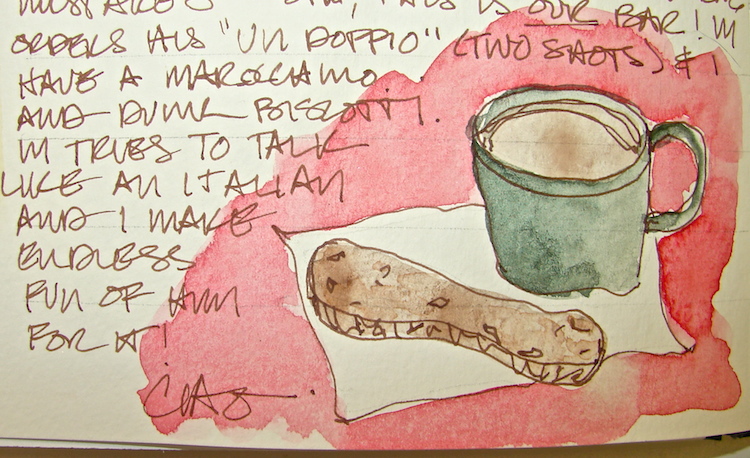 THIS IS OUR BAR! JM
ORDERS HIS "UN DOPPIO" (TWO SHOTS) & I
HAVE A MAROCCHINO
AND DUNK BISCOTTI.
JM TRIES TO TALK
LIKE AN ITALIAN
AND I MAKE
ENDLESS
FUN OF HIM
FOR IT!